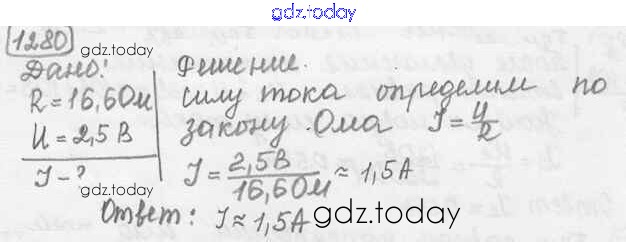 gdz.today
1280
Дано:
R = 16,6 Ом
U = 2,5 В
I - ?
Решение.
силу тока определим по
закону Ома I = U/R
I = 2,5В/16,6Ом ≈ 1,5А
Ответ: I ≈ 1,5А
gdz.today
gdz.today
gdz.today
gdz.today
gdz.today